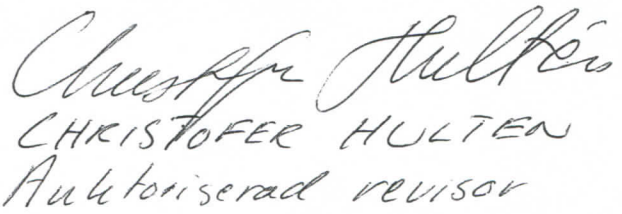 Christofer Hultén
CHRISTOFER HULTEN
Auktoriserad revisor